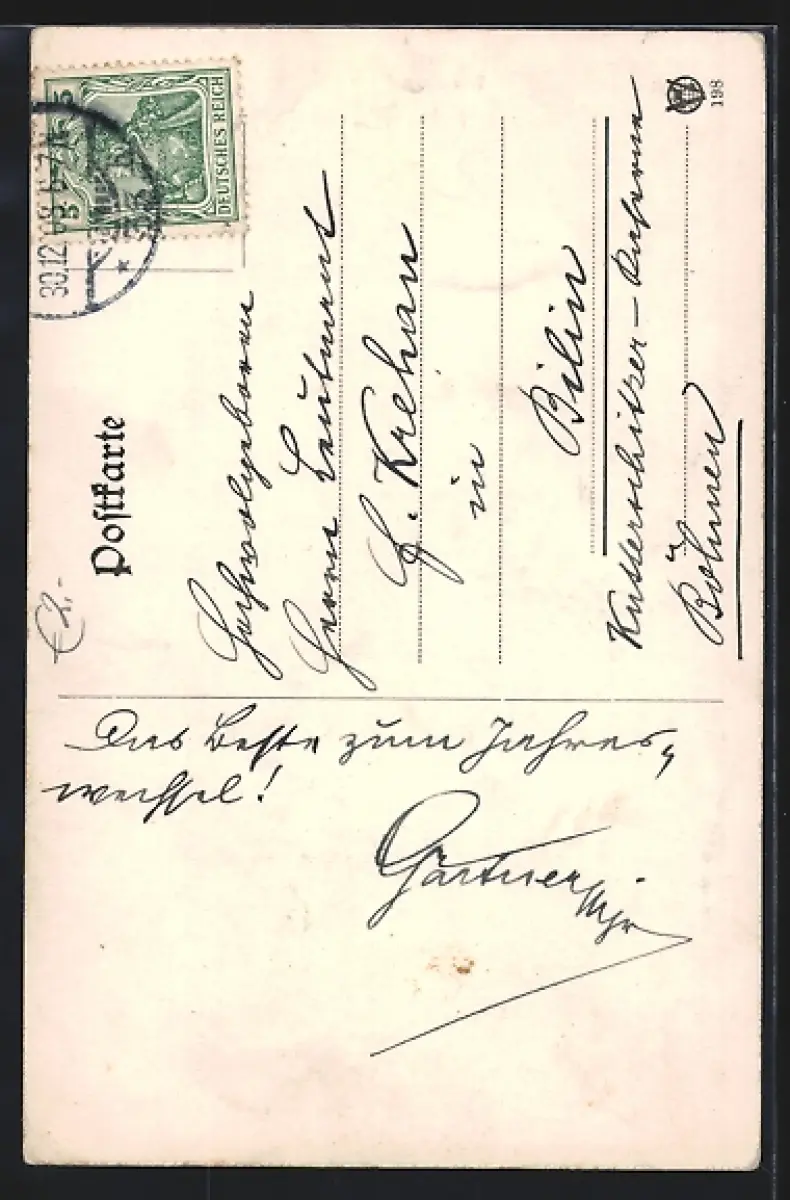 Postkarte
DEUTSCHES REICH
5 5
30.12.
€2,-
Hochwohlgeboren
Herrn Leutnant
G. Krehan
in
Bilin
Kutterschitzer-
Böhmen
198
Das Beste zum Jahres„
wechsel!
Gärtner